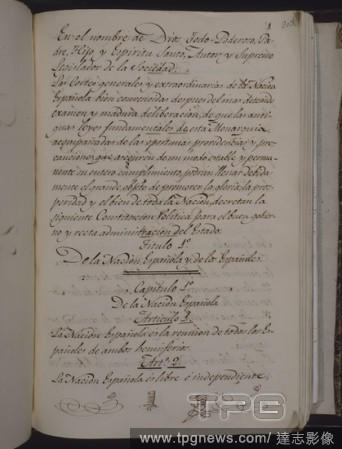 En el nombre de Dios Todo-Poderoso, Pa-
dre, Hijo, y Espiritu Santo, Autor y Supremo
Legislador de la Sociedad.
Las Cortes generales y extraordinarias de la Nacion
Española, bien convencidas despues del mas detenido
examen y madura deliberacion, de que las anti-
guas leyes fundamentales de esta Monarquia
acompañadas de las oportunas providencias y pre-
cauciones, que aseguren de un modo estable y perma-
nente su entero cumplimiento, podran llenar debida-
mente el grande objeto de promover la gloria, la pros-
peridad y el bien de toda la Nacion, decretan la
siguiente Constitucion Politica para el buen gobier-
no y recta administracion del Estado.
Titulo 1º
De la Nacion Española y de los Españoles.
Capitulo 1º
De la Nacion Española
Articulo 1.
La Nacion Española es la reunion de todos los Es-
pañoles de ambos hemisferios.
Art.º 2.
La Nacion Española es libre é independiente
TPG
www.tpgnews.com/達志影像